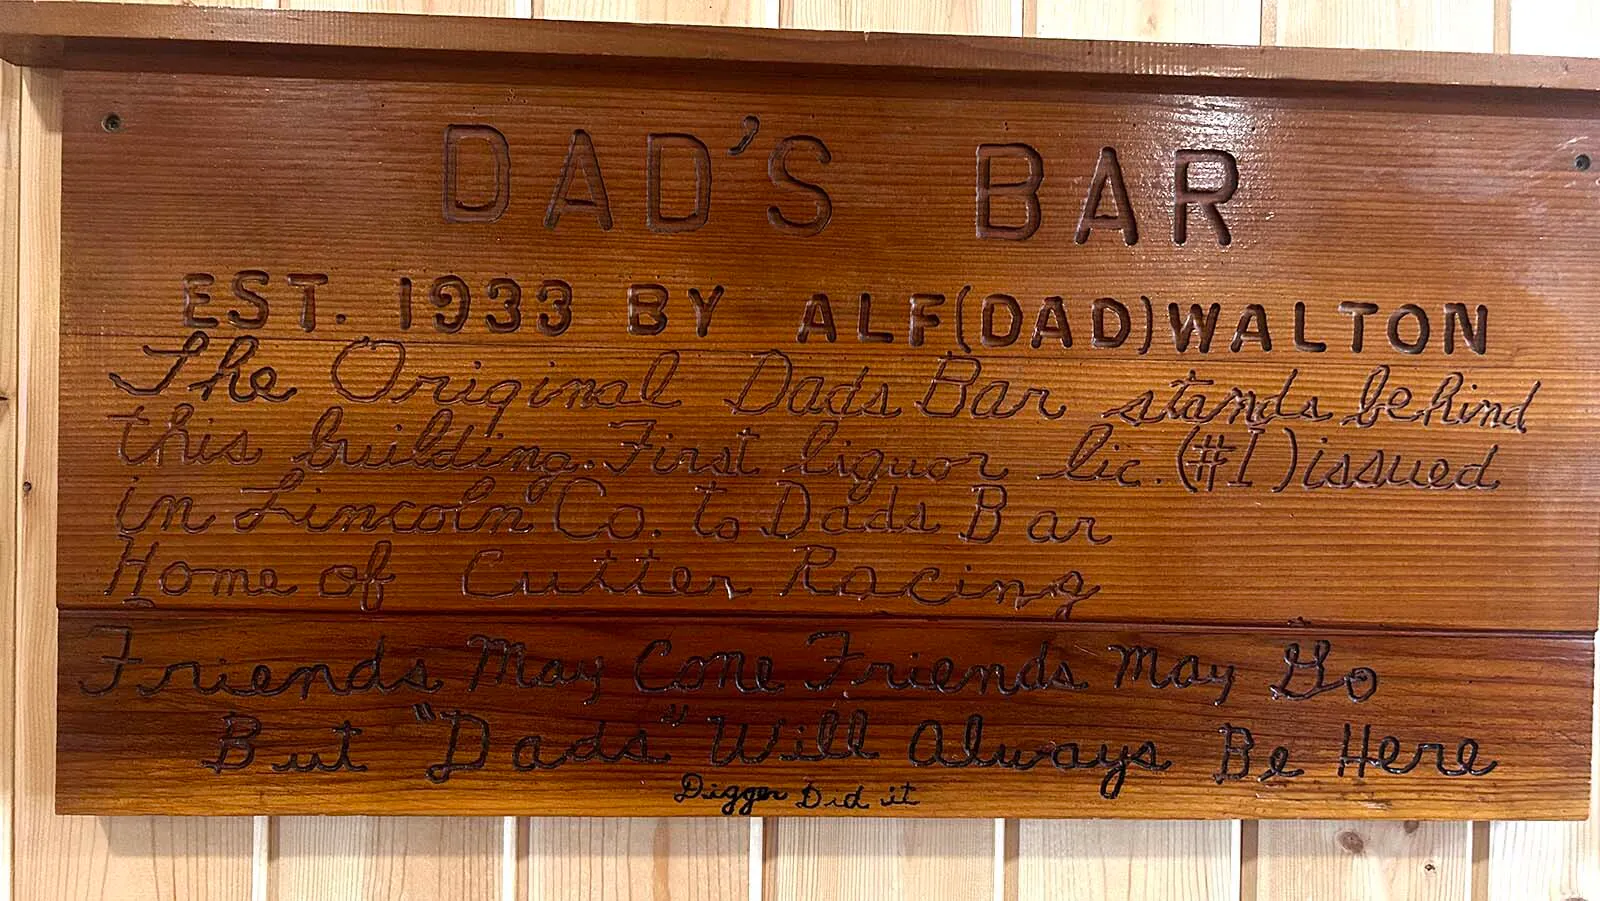 DAD'S BAR
EST. 1933 BY ALF(DAD)WALTON
The Original Dads Bar stands behind
this building. First liquor lic. (#1) issued
in Lincoln Co. to Dads Bar
Home of Cutter Racing
Friends May Come Friends May Go
But "Dads" Will Always Be Here
Digger Did it